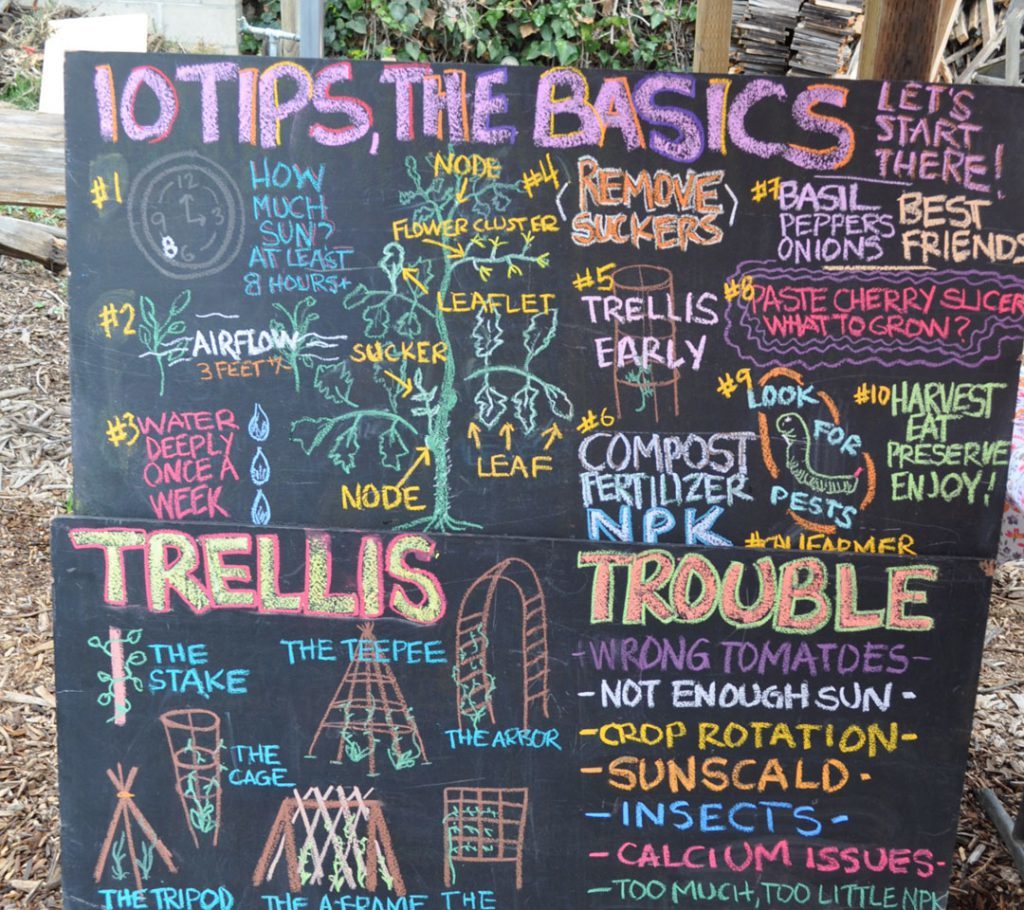 10 TIPS, THE BASICS
LET'S
START
THERE!
#1
12
9
3
8
6
HOW
MUCH
SUN?
AT LEAST
8 HOURS+
#2
AIRFLOW
3 FEET
#3 WATER
DEEPLY
ONCE A
WEEK
NODE
FLOWER CLUSTER
LEAFLET
SUCKER
LEAF
NODE
#4
REMOVE
SUCKERS
#5
TRELLIS
EARLY
#6
COMPOST
FERTILIZER
NPK
#7 BASIL
PEPPERS
ONIONS
BEST
FRIENDS
#8
PASTE CHERRY SLICER
WHAT TO GROW?
#9
LOOK
FOR
PESTS
#10 HARVEST
EAT
PRESERVE
ENJOY!
TRELLIS
THE
STAKE
THE TEEPEE
THE ARBOR
THE
CAGE
THE TRIPOD
THE A-FRAME
THE
TROUBLE
-WRONG TOMATOES-
-NOT ENOUGH SUN-
-CROP ROTATION-
-SUNSCALD-
-INSECTS-
-CALCIUM ISSUES-
-TOO MUCH, TOO LITTLE NPK